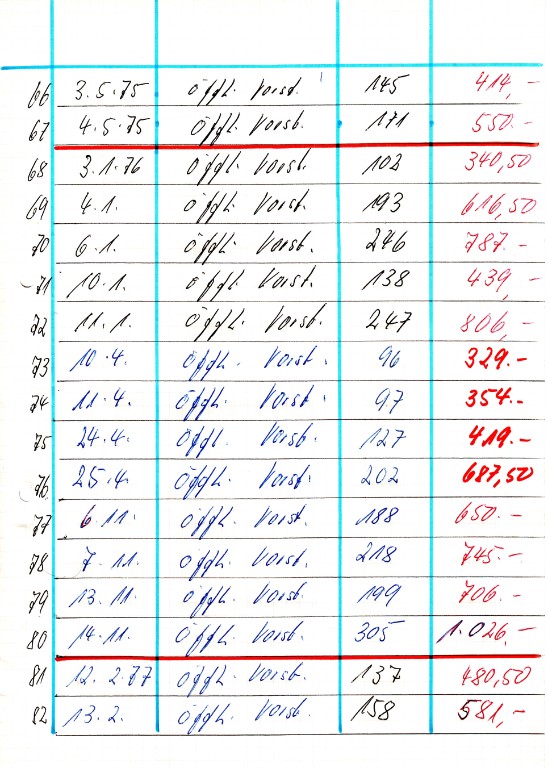 66 3.5.75 Öfftl. Vorst. 145 414,-
67 4.5.75 Öfftl. Vorst. 171 550.-
68 3.1.76 Öfftl. Vorst. 102 340,50
69 4.1. Öfftl. Vorst. 193 616,50
70 6.1. Öfftl. Vorst. 246 787.-
71 10.1. Öfftl. Vorst. 138 439,-
72 11.1. Öfftl. Vorst. 247 806,-
73 10.4. Öfftl. Vorst. 96 329.-
74 11.4. Öfftl. Vorst. 97 354.-
75 24.4. Öfftl. Vorst. 127 419.-
76 25.4. Öfftl. Vorst. 202 687,50
77 6.11. Öfftl. Vorst. 188 650.-
78 7.11. Öfftl. Vorst. 218 745.-
79 13.11. Öfftl. Vorst. 199 706.-
80 14.11. Öfftl. Vorst. 305 1.026,-
81 12.2.77 Öfftl. Vorst. 137 480,50
82 13.2. Öfftl. Vorst. 158 581,-